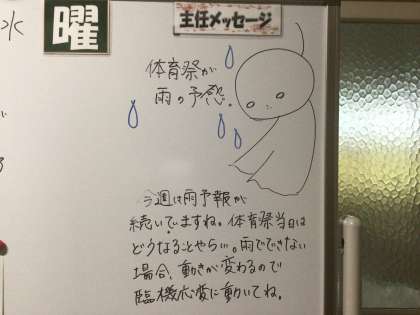 水
曜
主任メッセージ
体育祭が
雨の予感。
今週は雨予報が
続いていますね。体育祭当日は
どうなることやら…。雨でできない
場合、動きが変わるので
臨機応変に動いてね。